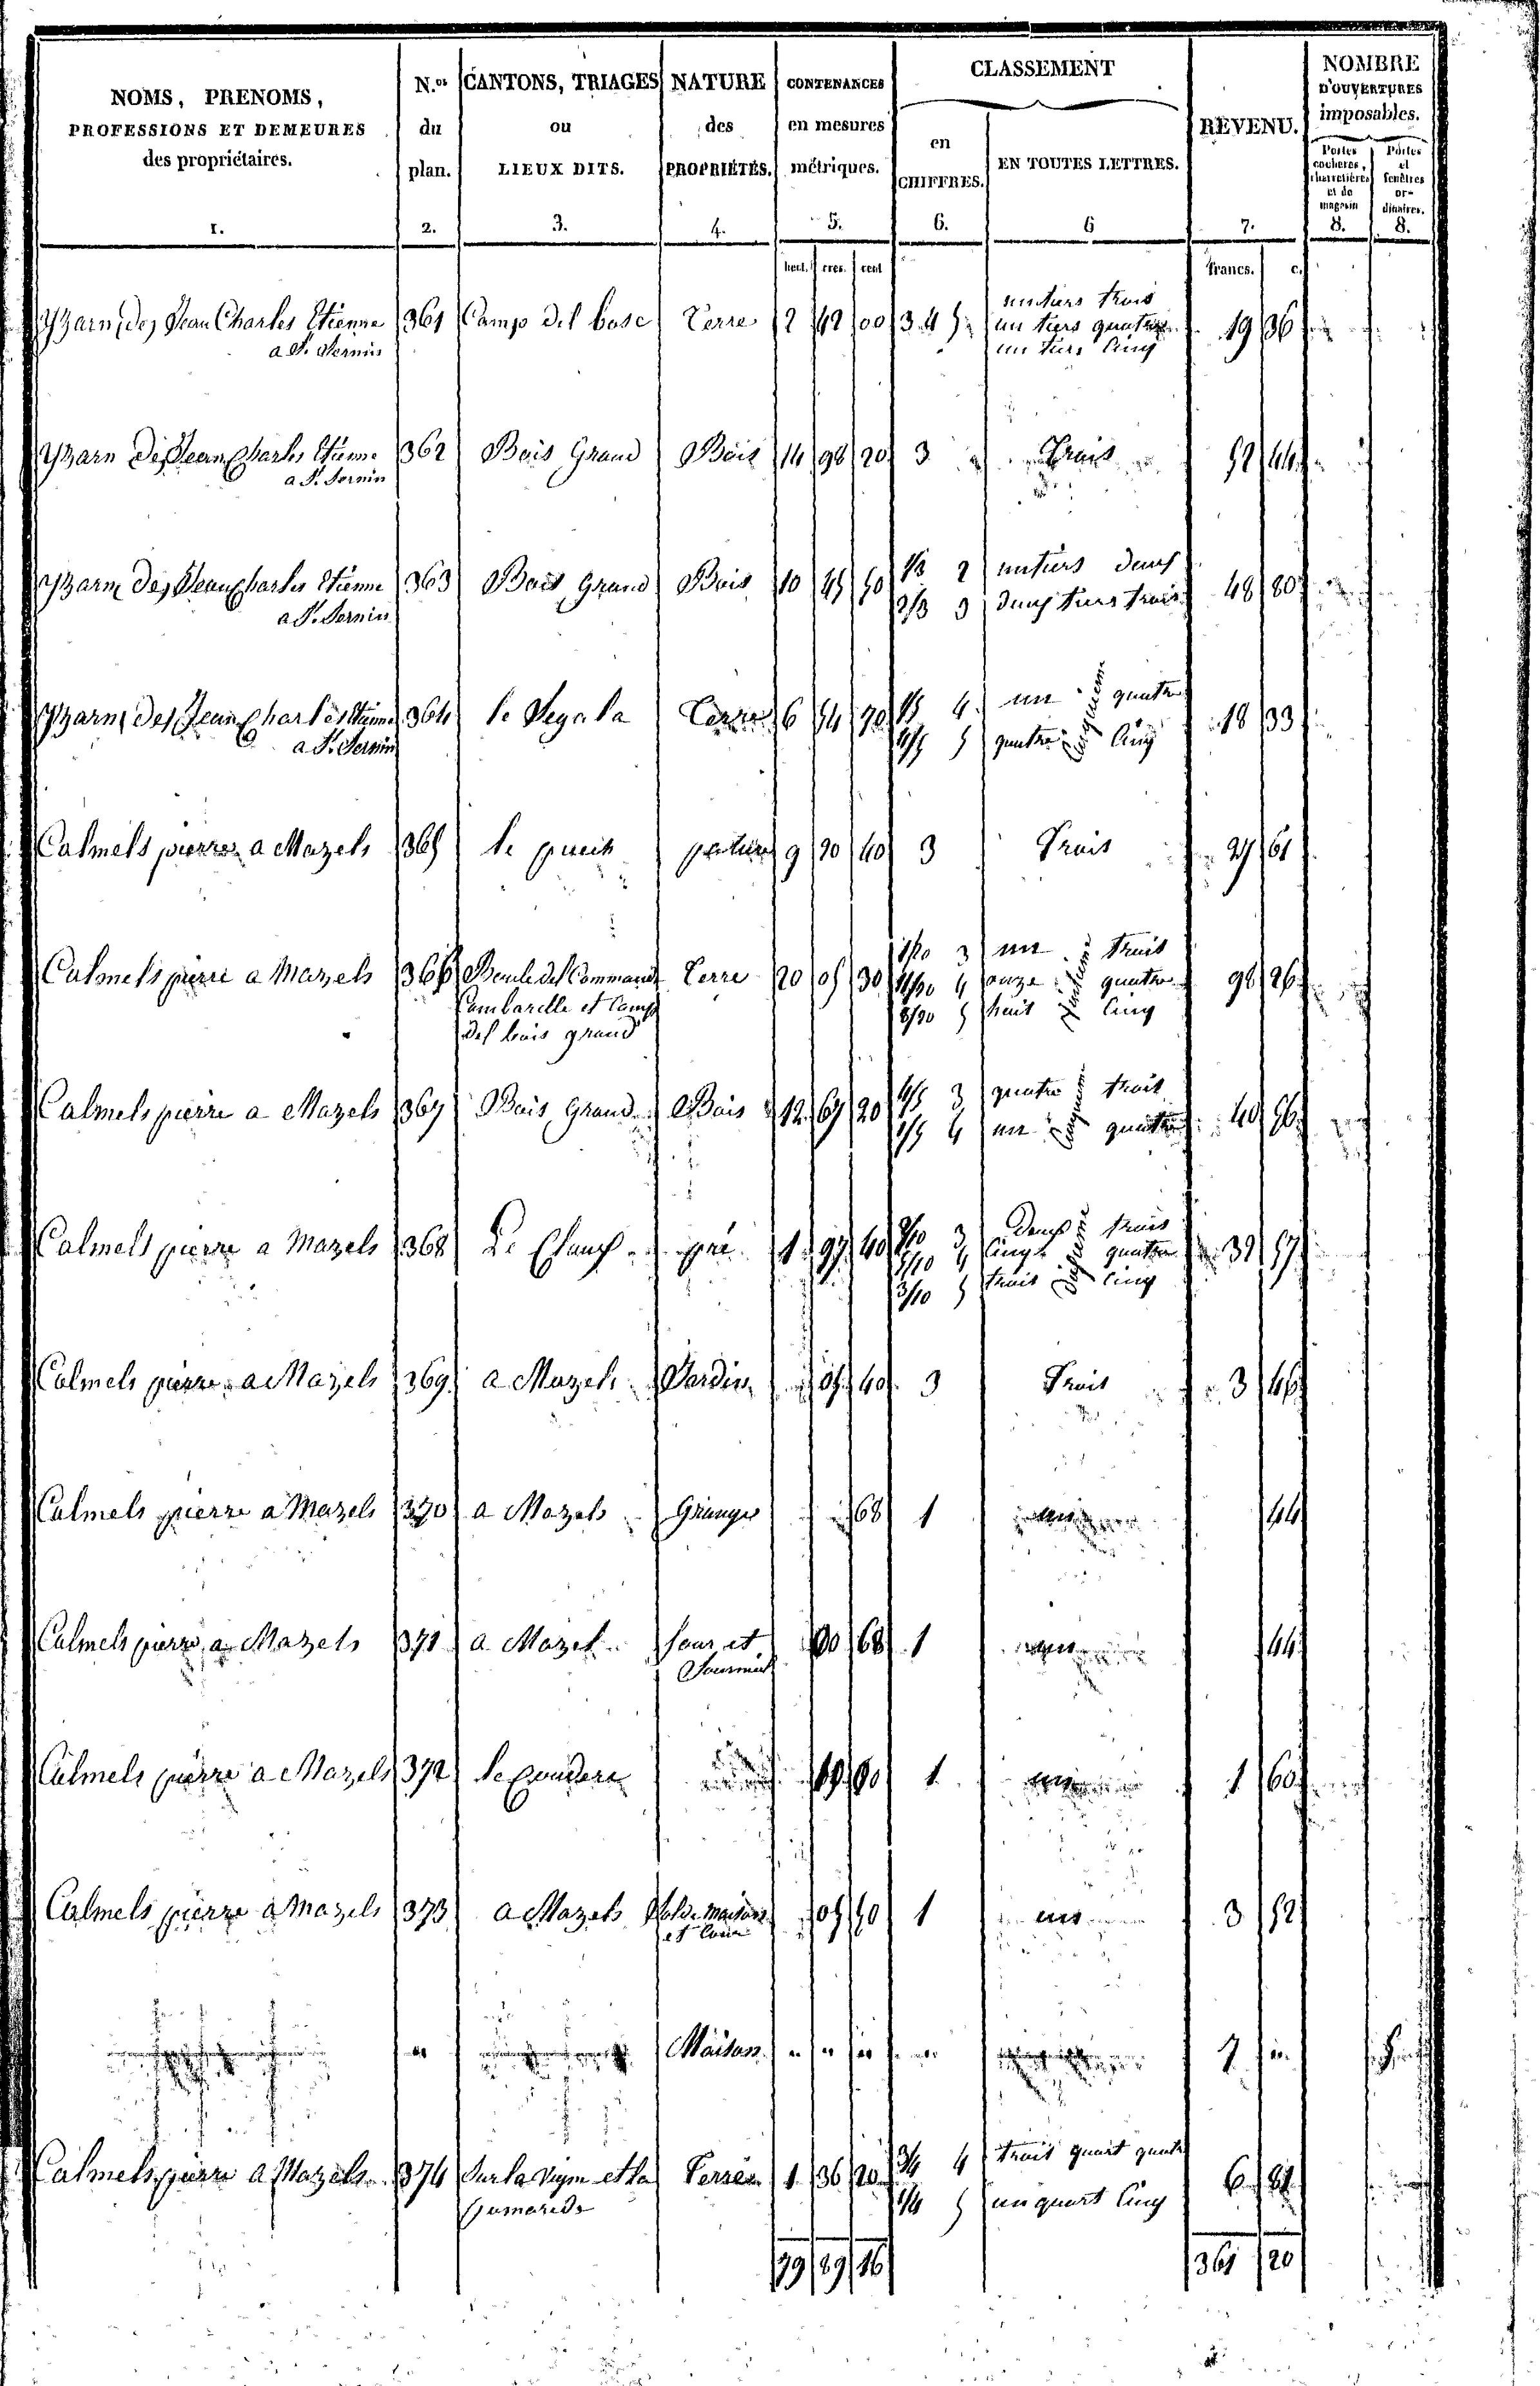 NOMS, PRENOMS, PROFESSIONS ET DEMEURES des propriétaires.
N.os du plan.
CANTONS, TRIAGES ou LIEUX DITS.
NATURE des PROPRIÉTÉS.
CONTENANCES en mesures métriques.
CLASSEMENT
en CHIFFRES.
EN TOUTES LETTRES.
REVENU.
NOMBRE D'OUVERTURES imposables.
Portes cochères, charretières et de magasin
Portes et fenêtres ordinaires.
1. 2. 3. 4. 5. 6. 6 7. 8. 8.
hect. ares. cent francs. c.
Yzarn, de, Jean Charles Etienne 361 Camp del bosc Terre 2 42 00 3 4 5 un tiers trois
a St. Sernin un tiers quatre 19 36
un tiers Cinq
Yzarn De Jean Charles Etienne 362 Bois Grand Bois 14 98 20 3 Trois 52 44
a St. Sernin
Yzarn, De, Jean Charles Etienne 363 Bois Grand Bois 10 45 50 1/3 2 un tiers deux 48 80
a St. Sernin 2/3 3 deux tiers trois
Yzarn, De, Jean Charles Etienne 364 le Segala Terre 6 54 70 1/5 4 un cinquieme quatre 18 33
a St. Sernin 4/5 5 quatre Cinq
Calmels pierre a Mazels 365 le puech pature 9 20 40 3 Trois 27 61
Calmels pierre a Mazels 366 Terre 20 05 30 1/20 3 un trois
Cambarelle et Camp 11/20 4 onze quatre 98 26
del bois grand 8/20 5 huit Cinq
Calmels pierre a Mazels 367 Bois Grand Bois 12 67 20 4/5 3 quatre trois
1/5 4 un quatre 40 56
Calmels pierre a Mazels 368 pré 1 97 40 2/10 3 Deux trois
5/10 4 Cinq quatre 32 57
3/10 5 trois Cinq
Calmels pierre a Mazels 369 a Mazels Jardin 05 40 3 Trois 3 46
Calmels pierre a Mazels 370 a Mazels Grange 68 1 44
Calmels pierre a Mazels 371 a Mazels four et 00 68 1 44
Calmels pierre a Mazels 372 1 1 60
Calmels pierre a Mazels 373 a Mazels Sol de maison 05 50 1 un 3 52
et Cour
Maison 7
Calmels pierre a Mazels 374 Sur la vigne et la Terre 1 36 20 3/4 4 trois quart quatre
1/4 5 un quart Cinq 6 81
79 89 16 361 20